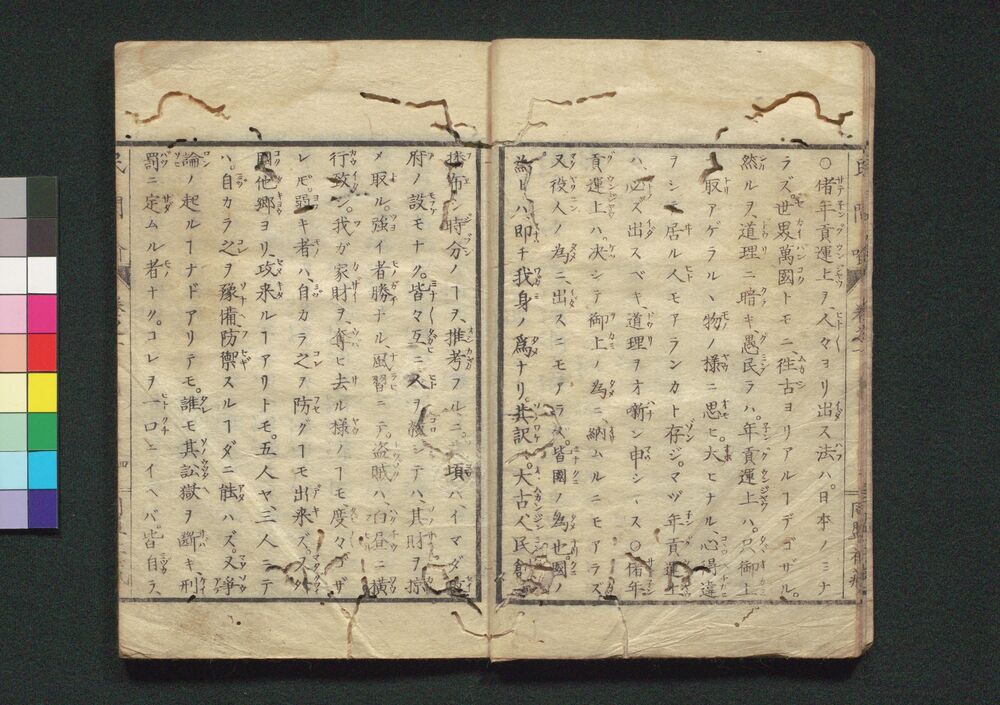 ○偖年貢運上ヲ、人々ヨリ出ス法ハ。日本ノミナ
ラズ世界萬國トモニ、徃古ヨリアルヿデゴザル。
然ルヲ道理ニ暗キ愚民ラハ。年貢運上ハ。只御上
取アゲラルヽ物ノ様ニ思ヒ。大ヒナル心得違
ヲシテ居ル人モアランカト存ジ。マヅ年貢運上
ハ、必ズ出スベキ、道理ヲオ噺シ申シ ス○偖年
貢運上ハ。决シテ御上ノ為ニ、納ムルニモアラズ
又役人ノ為ニ、出スニモアラズ。皆國ノ為也。國ノ
為トハ、即チ我身ノ爲ナリ。其訳ハ。大古人民創
布シ時分ノヿヲ、推考フルニ。 頃ハイマダ政
府ノ設モナク。皆々互ニ人ヲ シテハ、其財ヲ掠
メ取ル。強イ者勝ナル、風習ニテ。盗賊ハ白昼ニ横
行致シ。我ガ家財ヲ、奪ヒ去ル様ノヿモ度々ゴザ
レ𪜈。弱キ者ハ、自カラ之ヲ防グヿモ出来ズ。又外
國他郷ヨリ、攻来ルヿアリトモ。五人ヤ、三人ニテ
ハ。自カラ之ヲ豫備防禦スルヿダニ能ハズ。又爭
論ノ起ルヿナドアリテモ。誰モ其訟獄ヲ斷キ刑
罰ニ定ムル者ナク。コレヲ一口ニイヘバ。皆自ラ、